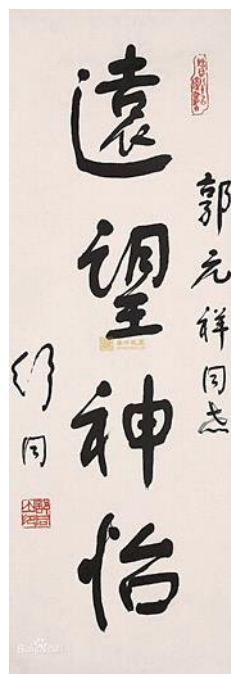 郭元祥同志
遠望神怡
舒同